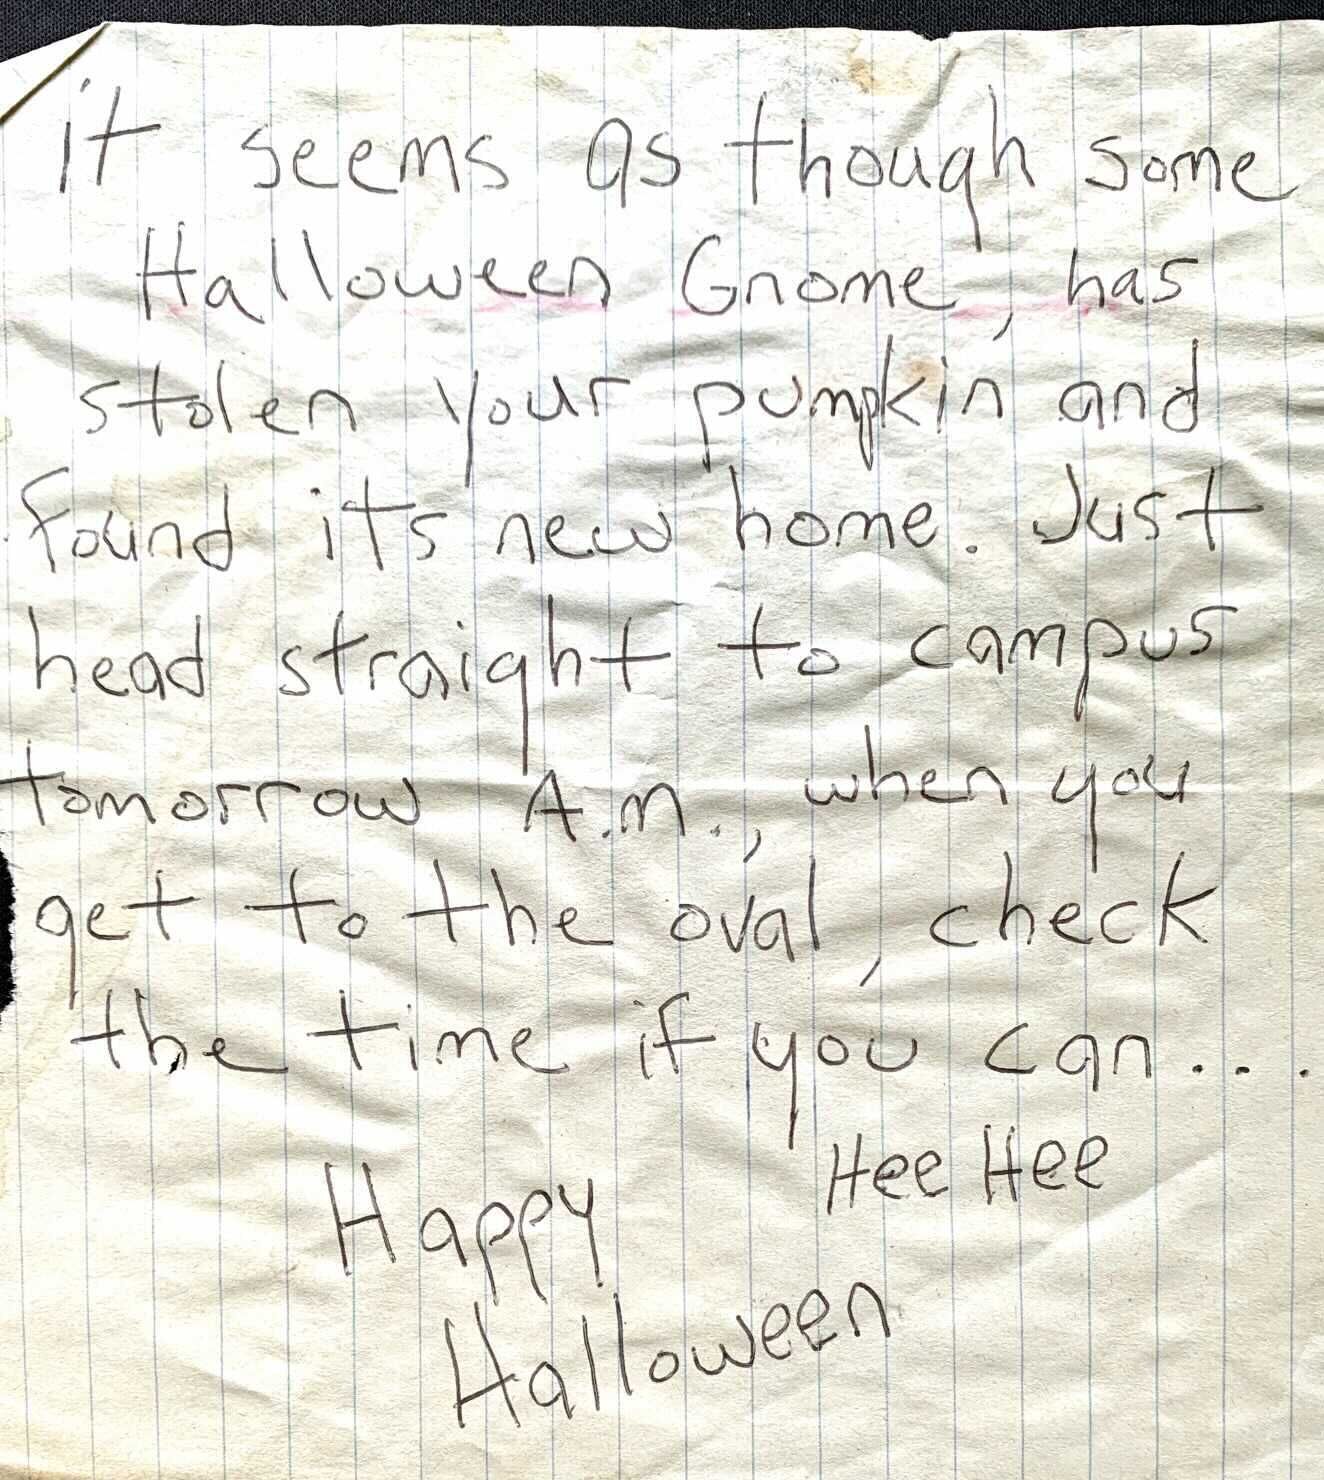 it seems as though some
Halloween Gnome, has
stolen your pumpkin and
found it's new home. Just
head straight to campus
tomorrow A.M., when you
get to the oval, check
the time if you can...
Hee Hee
Happy
Halloween